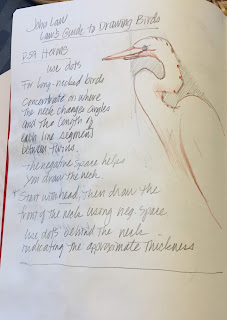 John Laws
Laws Guide to Drawing Birds
P59 Herons
use dots
For long-necked birds
Concentrate on where
the neck changes angles
and the length of
each line segment
between turns.
the negative space helps
you draw the neck.
* Start with head, then draw the
front of the neck using neg. space
use dots behind the neck
indicating the approximate thickness